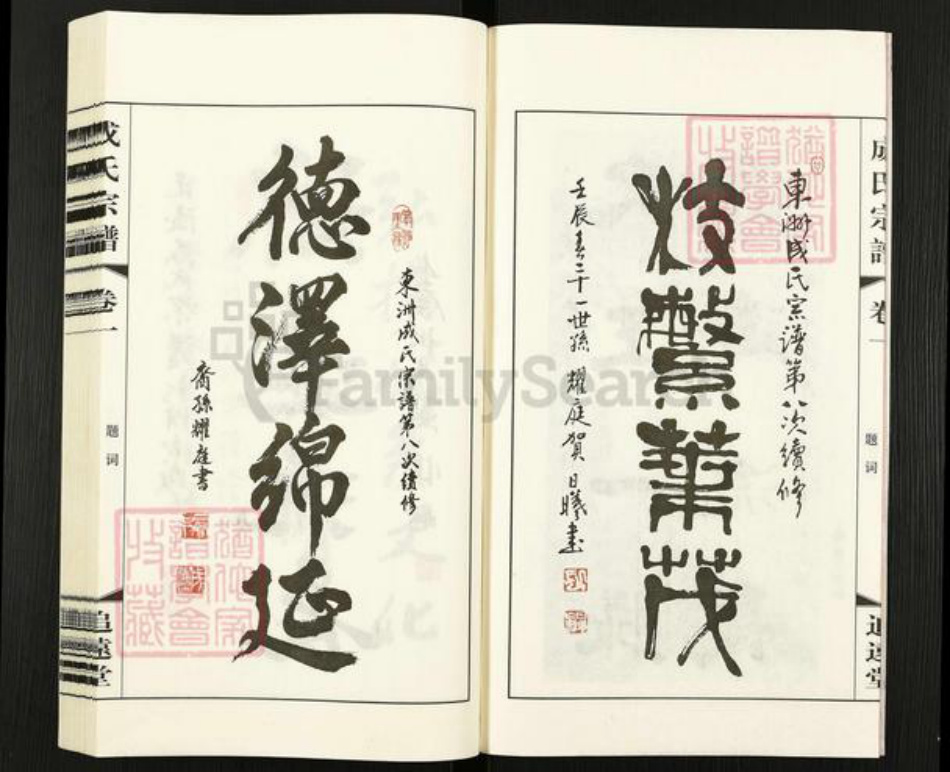 成氏宗譜
卷一
題词
追遠堂
東洲成氏宗譜第八次續修
枝繁葉茂
壬辰春二十一世孫 耀庭賀 日曦書
東洲成氏宗譜第八次續修
德澤綿延
裔孫耀庭書
成氏宗譜
卷一
題词
追遠堂
譜學會
收藏
譜學會
收藏
FamilySearch